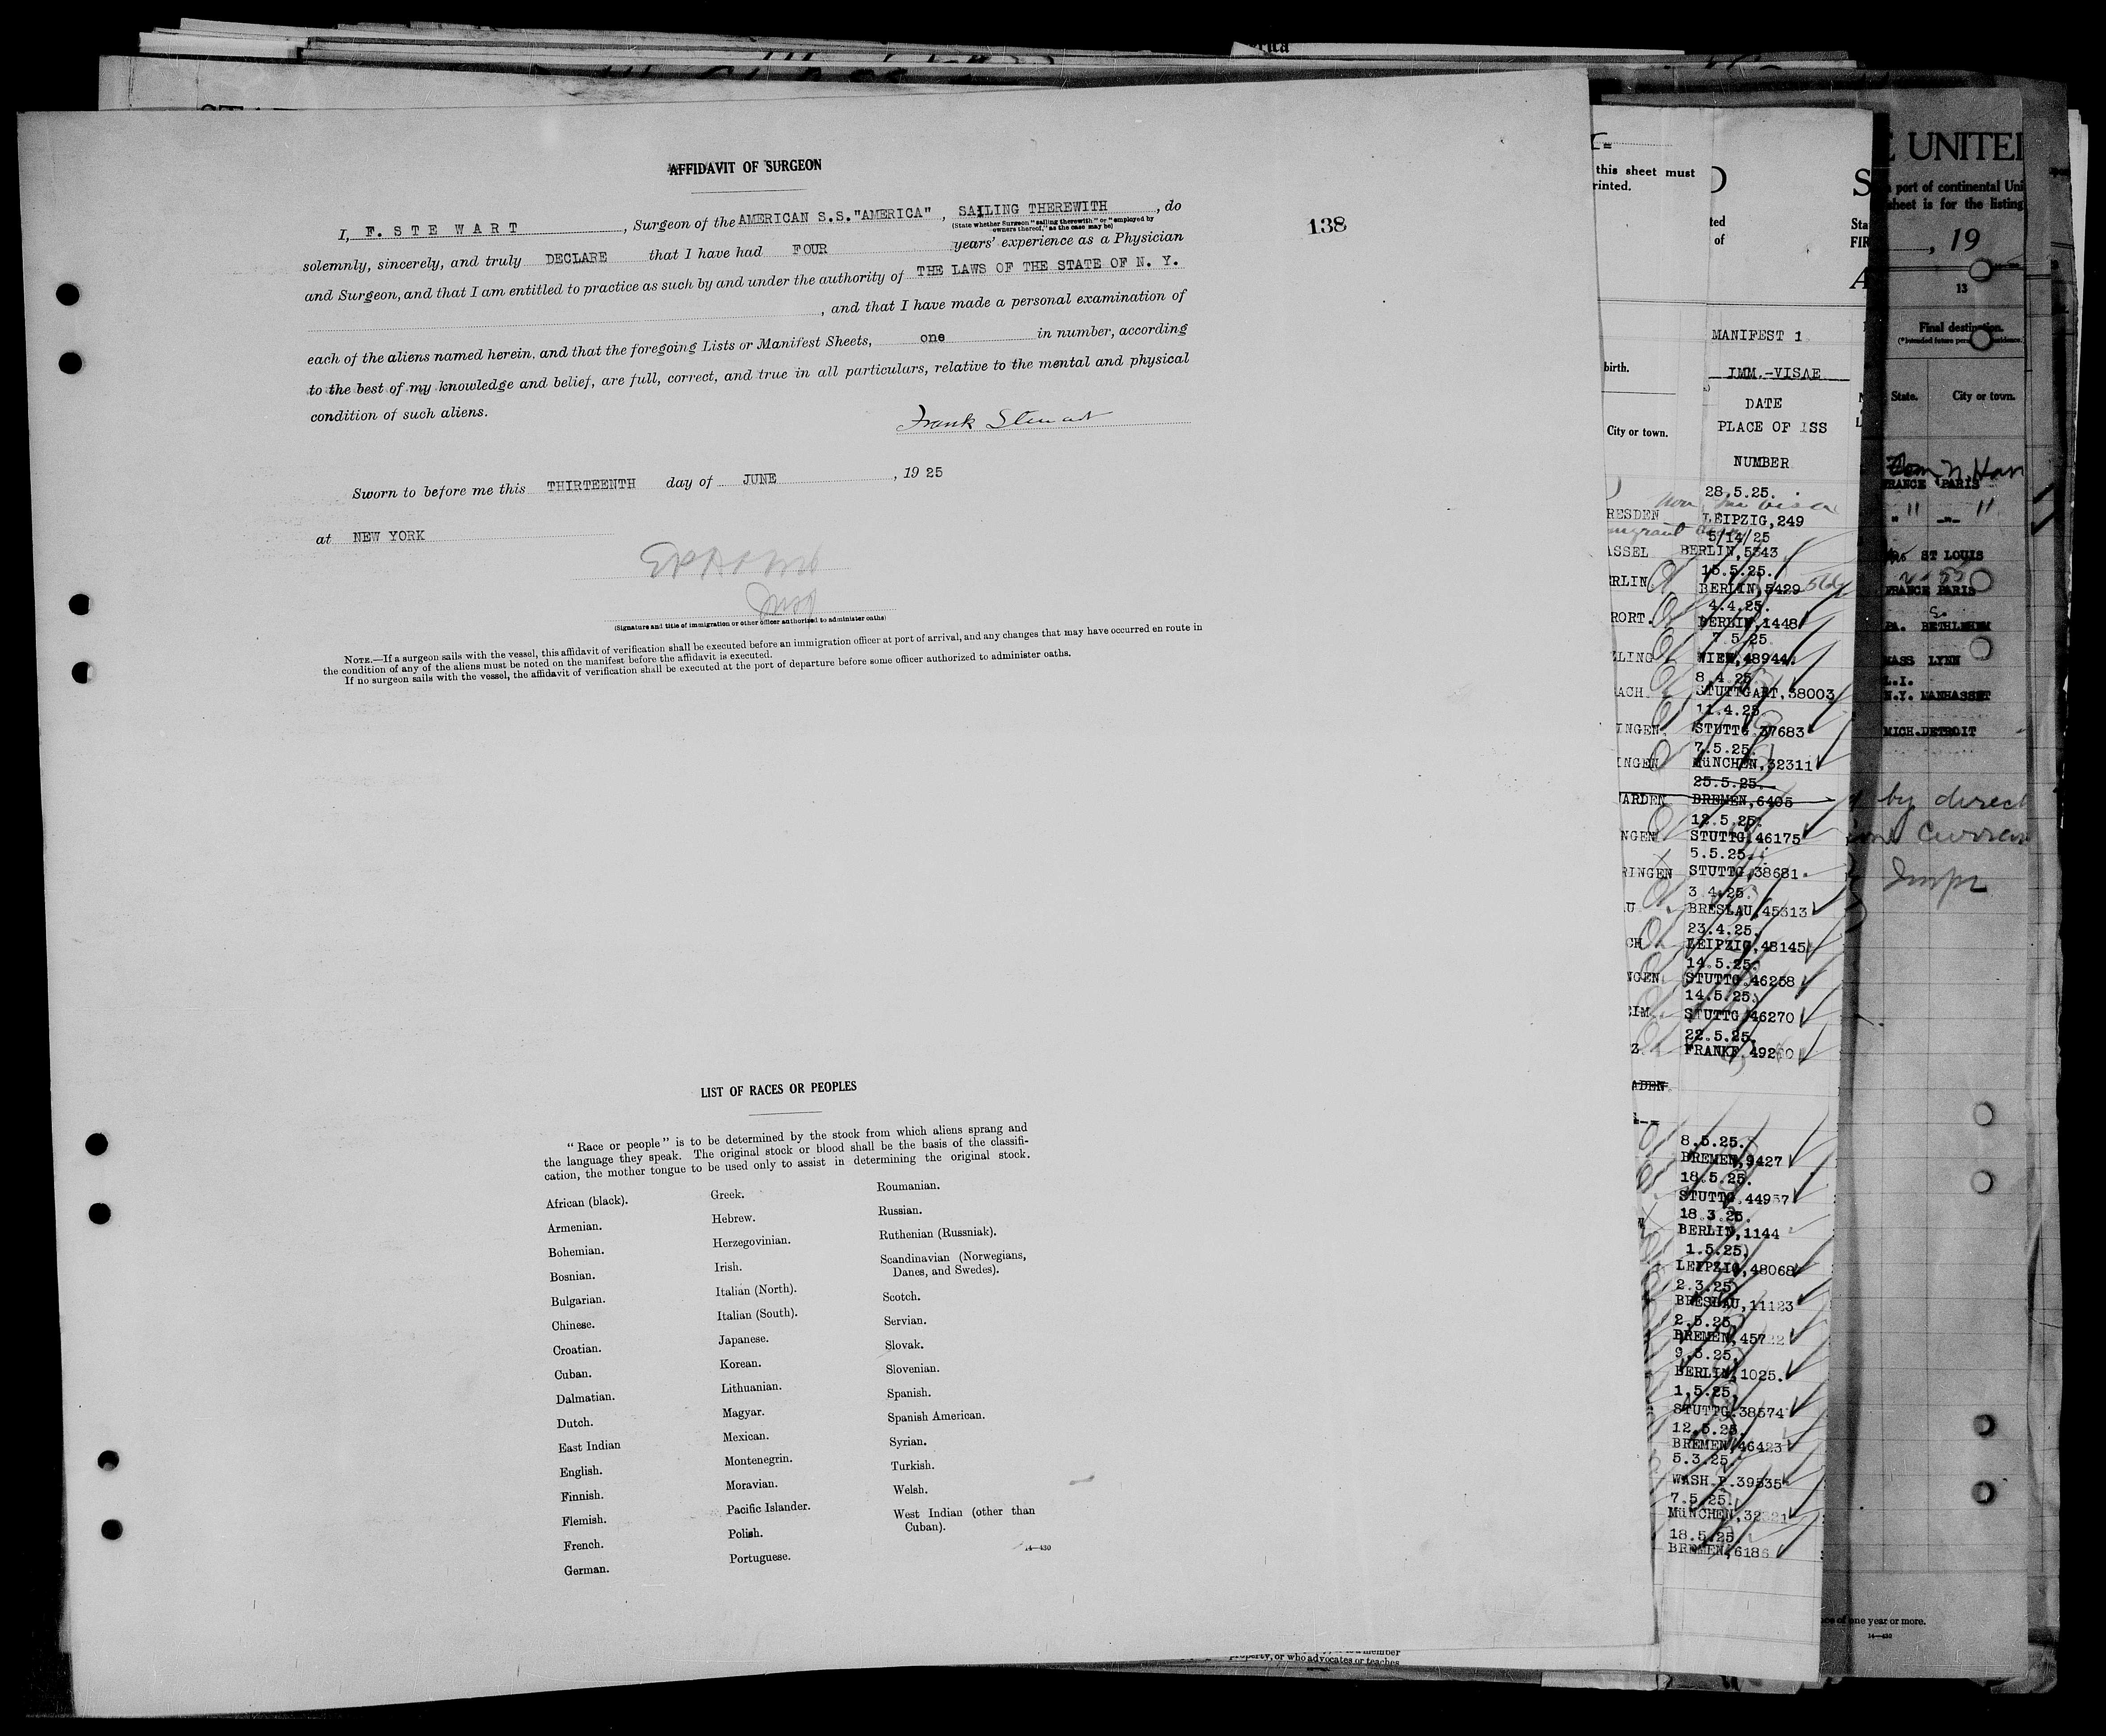 AFFIDAVIT OF SURGEON
138
I, F. S T E W A R T , Surgeon of the AMERICAN S.S."AMERICA" , SAILING THEREWITH , do
(State whether Surgeon "sailing therewith," or "employed by
owners thereof," as the case may be)
solemnly, sincerely, and truly DECLARE that I have had FOUR years' experience as a Physician
and Surgeon, and that I am entitled to practice as such by and under the authority of THE LAWS OF THE STATE OF N. Y.
, and that I have made a personal examination of
each of the aliens named herein, and that the foregoing Lists or Manifest Sheets, one in number, according
to the best of my knowledge and belief, are full, correct, and true in all particulars, relative to the mental and physical
condition of such aliens.
Frank Stewart
Sworn to before me this THIRTEENTH day of JUNE , 19 25
at NEW YORK
(Signature and title of immigration or other officer authorized to administer oaths)
NOTE.—If a surgeon sails with the vessel, this affidavit of verification shall be executed before an immigration officer at port of arrival, and any changes that may have occurred en route in
the condition of any of the aliens must be noted on the manifest before the affidavit is executed.
If no surgeon sails with the vessel, the affidavit of verification shall be executed at the port of departure before some officer authorized to administer oaths.
LIST OF RACES OR PEOPLES
"Race or people" is to be determined by the stock from which aliens sprang and
the language they speak. The original stock or blood shall be the basis of the classifi-
cation, the mother tongue to be used only to assist in determining the original stock.
African (black).
Armenian.
Bohemian.
Bosnian.
Bulgarian.
Chinese.
Croatian.
Cuban.
Dalmatian.
Dutch.
East Indian
English.
Finnish.
Flemish.
French.
German.
Greek.
Hebrew.
Herzegovinian.
Irish.
Italian (North).
Italian (South).
Japanese.
Korean.
Lithuanian.
Magyar.
Mexican.
Montenegrin.
Moravian.
Pacific Islander.
Polish.
Portuguese.
Roumanian.
Russian.
Ruthenian (Russniak).
Scandinavian (Norwegians,
Danes, and Swedes).
Scotch.
Servian.
Slovak.
Slovenian.
Spanish.
Spanish American.
Syrian.
Turkish.
Welsh.
West Indian (other than
Cuban).
14—430
this sheet must
rinted.
birth.
City or town.
MANIFEST 1
IMM.-VISAE
DATE
PLACE OF ISS
NUMBER
28.5.25.
RESDEN LEIPZIG,249
5/14/25
ASSEL BERLIN,5343
15.5.25.
RLIN BERLIN,5429
4.4.25.
RORT. BERLIN,1448
7.5.25
LING WIEN,48944
8.4.25
ACH STUTTGART,38003
11.4.25
INGEN STUTTG.37683
7.5.25.
INGEN MÜNCHEN,32311
25.5.25.
ARDEN BREMEN,6405
12.5.25.
NGEN STUTTG.46175
5.5.25.
RINGEN STUTTG.38681
3.4.25
U BRESLAU,45313
23.4.25.
CH LEIPZIG,48145
14.5.25.
NGEN STUTTG.46258
14.5.25.
EIM. STUTTG.46270
22.5.25.
Z. FRANKF.49260
ADEN.
8.5.25.
BREMEN,9427
18.5.25.
STUTTG.44957
18.3.25.
BERLIN,1144
1.5.25.
LEIPZIG,48068
2.3.25
BRESLAU,11123
2.5.25
BREMEN,45722
9.3.25.
BERLIN,1025.
1.5.25.
STUTTG.38574
12.5.25.
BREMEN,46423
5.3.25.
WASH.P.39535
7.5.25.
MÜNCHEN,32321
18.5.25
BREMEN,6186
E UNITED
port of continental Uni
sheet is for the listing
, 19
13
Final destination.
State. City or town.
FRANCE PARIS
" "
ST LOUIS
FRANCE PARIS
PA. BETHLEHEM
MASS LYNN
L.I.
N.Y. MANHASSET
MICH.DETROIT
by direct
Inspr
of one year or more.
14—430
member
property, or who advocates or teaches